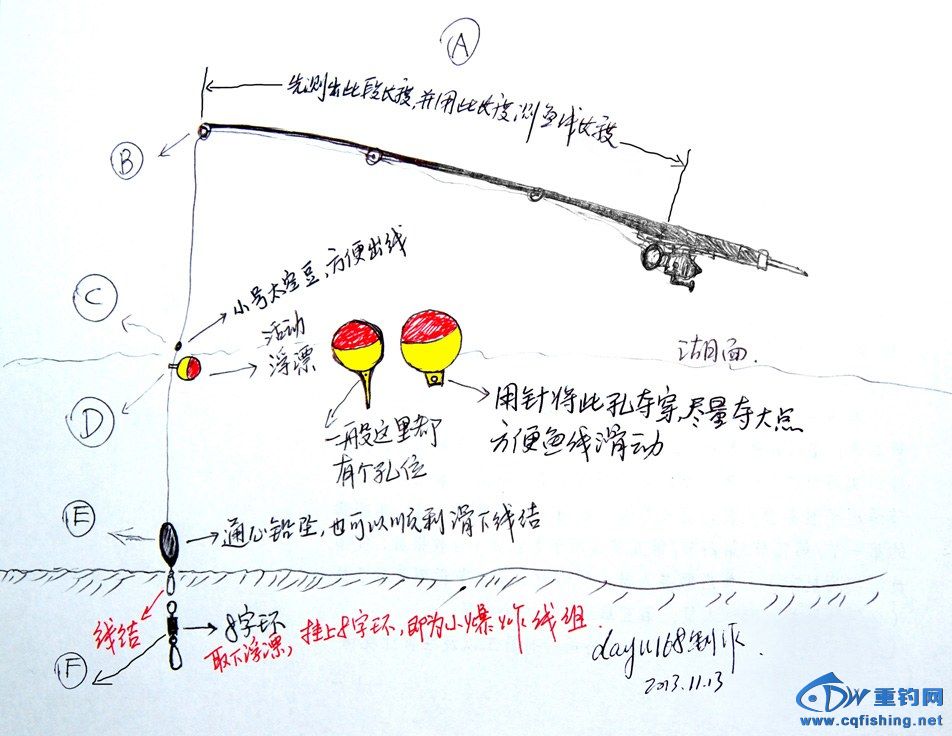 A
先测出此段长度,并用此长度,测鱼线长度
B
小号太空豆,方便出线
C
活动
浮漂
湖面.
D
用针将此孔夺穿,尽量夺大点
方便鱼线滑动
一般这里都
有个孔位
E
通心铅坠,也可以顺利滑下线结
线结
8字环
取下浮漂,挂上8字环,即为小爆炸线组.
F
dayu168制作.
2013.11.13
DW重钓网
www.cqfishing.net